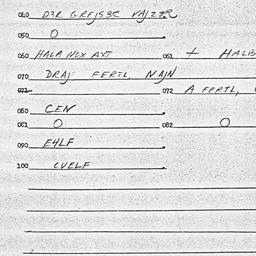 040 D3R GREJS3R VAJZ3R
050 O
060 HALB NOX AXT 061 + HALB
070 DRAJ FERTL NAJN
071 072 A FERTL,
080 CEN
081 O 082 O
090 E4LF
100 CVELF